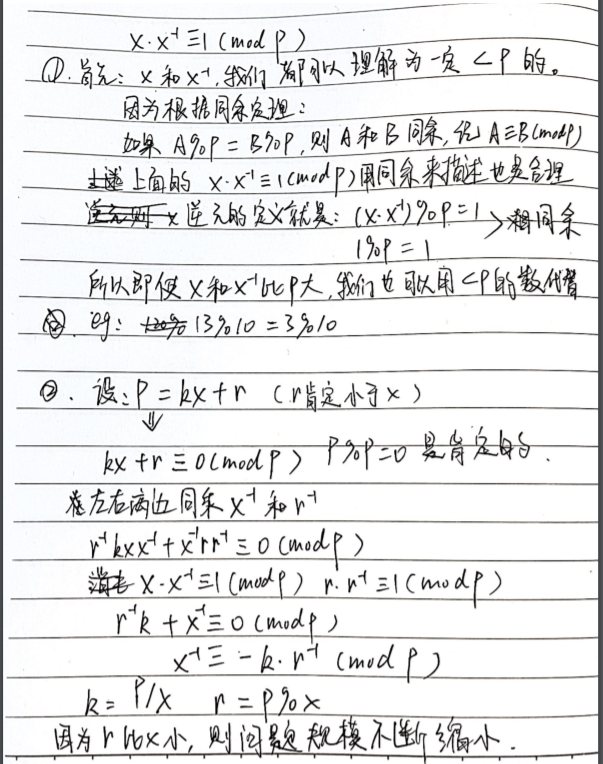 x·x⁻¹≡1 (mod p)
①. 首先: x 和 x⁻¹, 我们都可以理解为一定 <p 的。
因为根据同余定理:
如果 A%p = B%p, 则 A 和 B 同余, 记 A≡B(mod p)
上面的 x·x⁻¹≡1(mod p)用同余来描述也是合理
逆元的定义就是: (x·x⁻¹)%p=1 > 相同余
1%p = 1
所以即使 x 和 x⁻¹ 比 p 大, 我们也可以用 <p 的数代替
eg: 13%10 = 3%10
②. 设: p = kx+r (r肯定小于x)
⇓
kx+r≡0(mod p) p%p=0 是肯定的.
在左右两边同乘 x⁻¹ 和 r⁻¹
r⁻¹kxx⁻¹+x⁻¹rr⁻¹≡0 (mod p)
x·x⁻¹≡1(mod p) r·r⁻¹≡1(mod p)
r⁻¹k + x⁻¹≡0 (mod p)
x⁻¹≡ -k·r⁻¹ (mod p)
k = p/x r = p%x
因为 r 比 x 小, 则问题规模不断缩小.